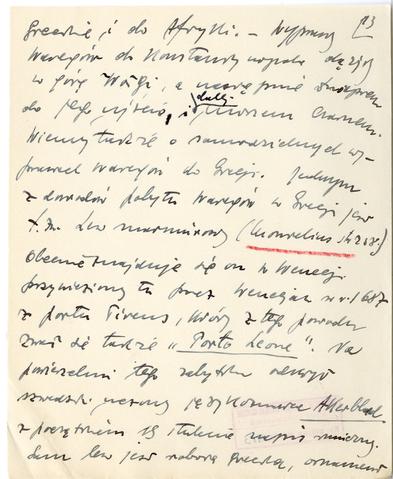 13
Grecki, i do Afryki. – Wyprawy
Waregów do Konstantynopola dążyły
w górę Wołgi, a następnie Dnieprem
do jego ujścia, i dalej morzem Czarnem.
Wiemy także o samodzielnych wy-
prawach Waregów do Grecji. Jednym
z dowodów pobytu Waregów w Grecji jest
t. zw. Lew marmurowy (
Obecnie znajduje się on w Wenecji
przywieziony tu przez Wenecjan w r. 1687
z portu Pireus, który z tego powodu
zwał się także "Porto Leone". Na
powierzchni tego zabytku odkrył
szwedzki uczony języko Akerblad
z początkiem 19 stulecia napis runiczny.
Sam lew jest robotą grecką, ornament